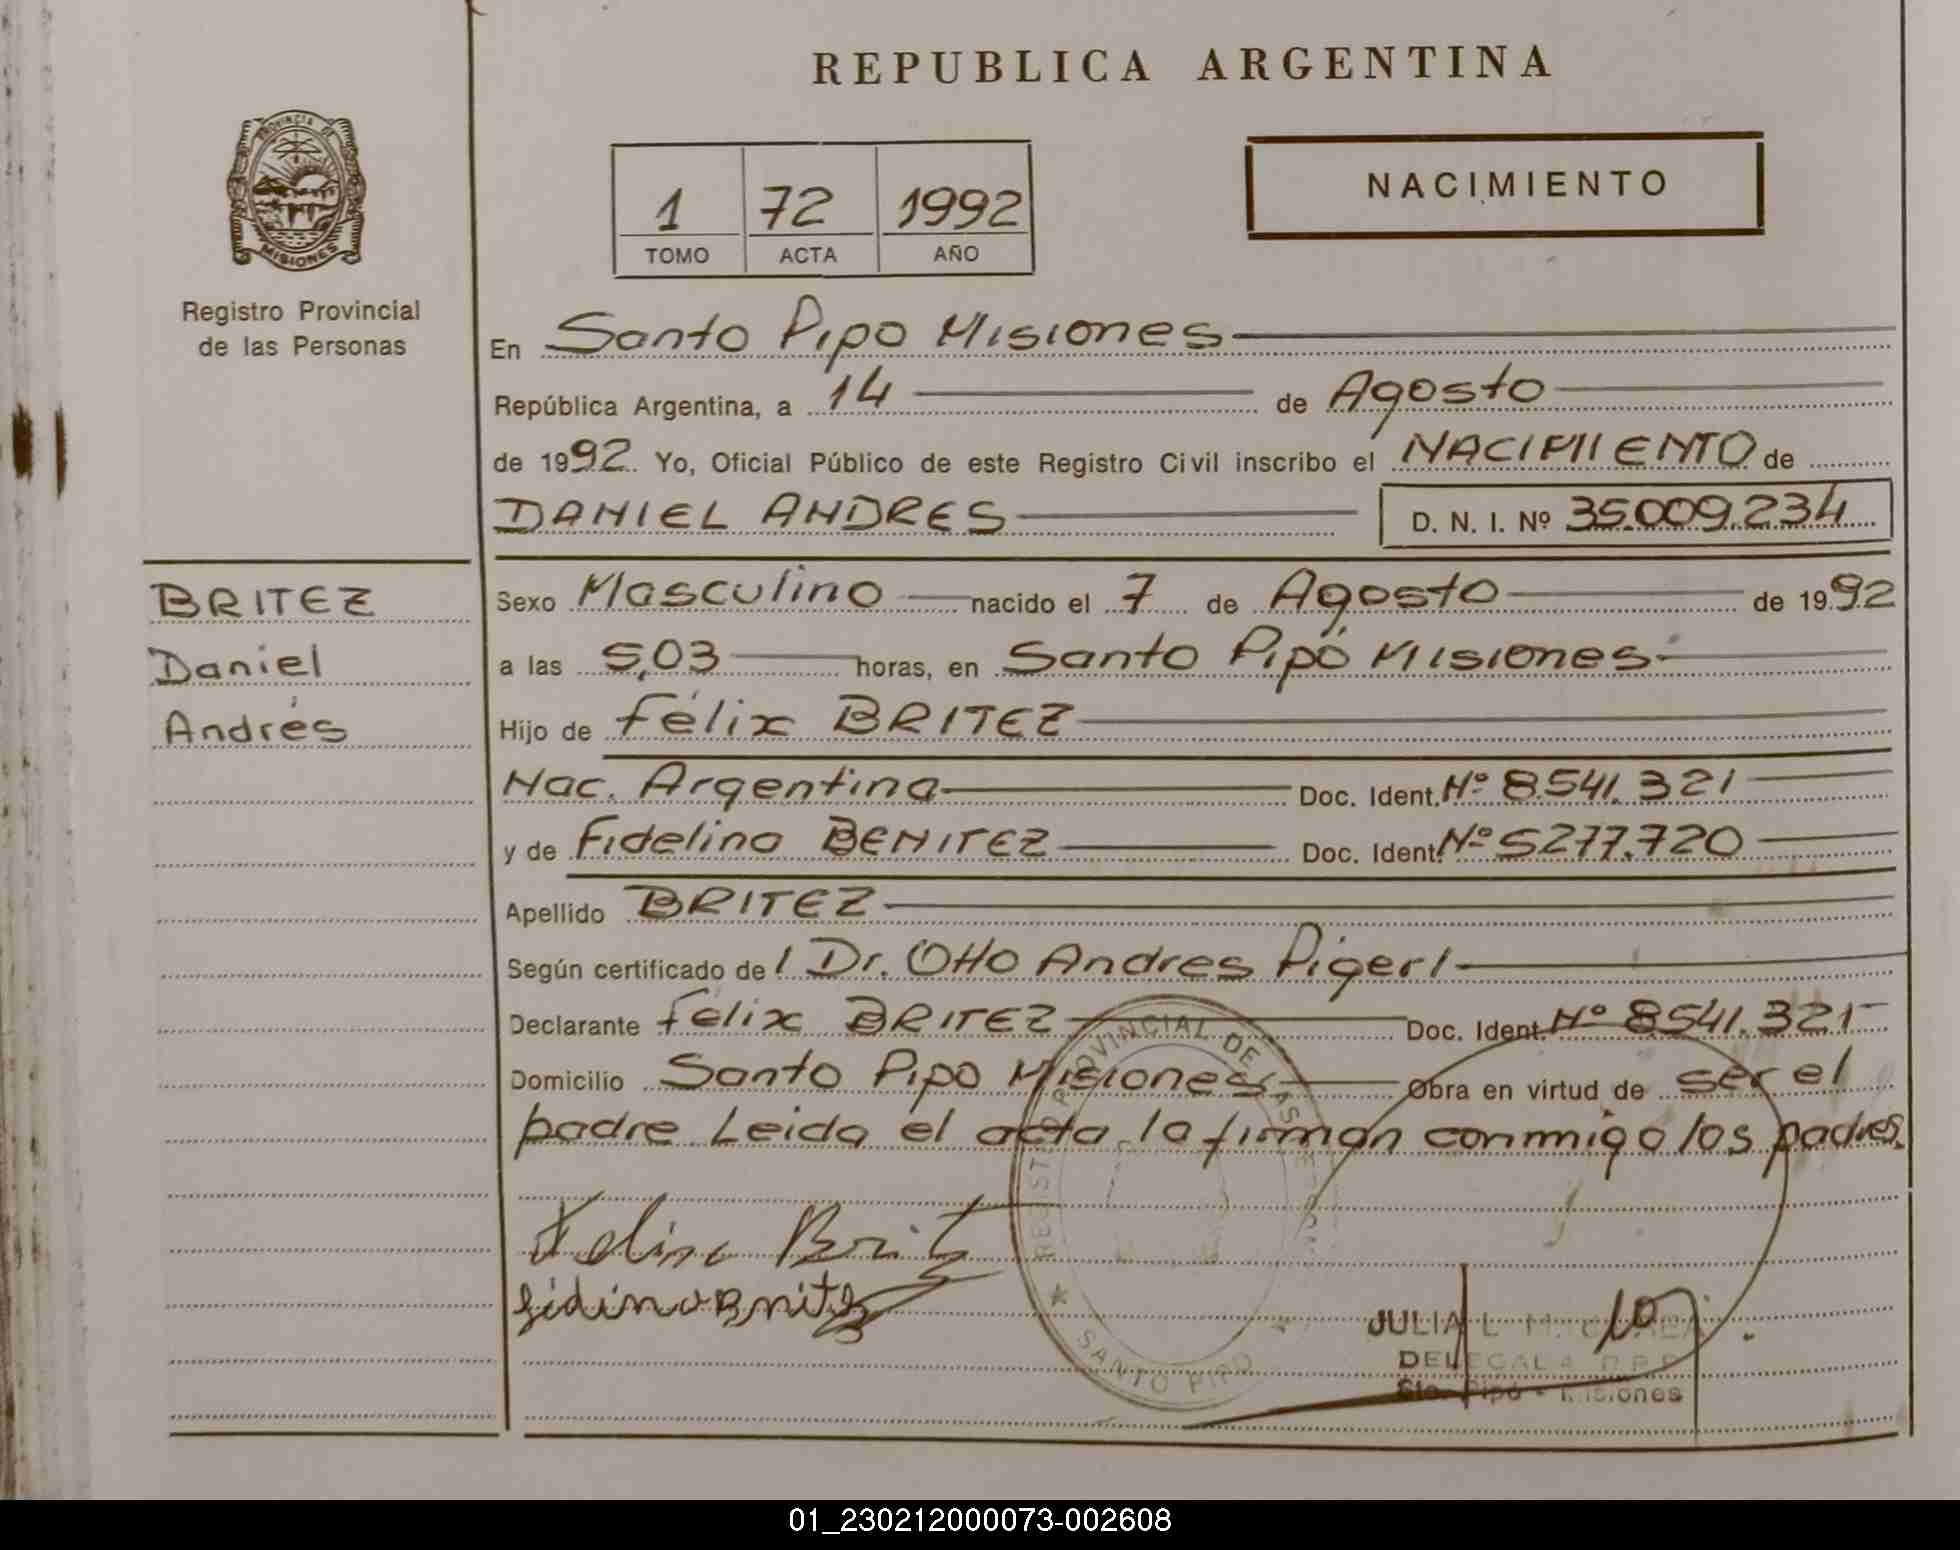 REPUBLICA ARGENTINA
PROVINCIA DE
MISIONES
Registro Provincial
de las Personas
1 72 1992
TOMO ACTA AÑO
NACIMIENTO
En Santo Pipo Misiones
República Argentina, a 14 de Agosto
de 1992. Yo, Oficial Público de este Registro Civil inscribo el NACIMIENTO de
DANIEL ANDRES D. N. I. Nº 35.009.234
BRITEZ
Daniel
Andrés
Sexo Masculino nacido el 7 de Agosto de 1992
a las 5,03 horas, en Santo Pipó Misiones
Hijo de Félix BRITEZ
Nac. Argentina Doc. Ident. Nº 8.541.321
y de Fidelina BENITEZ Doc. Ident. Nº 5277.720
Apellido BRITEZ
Según certificado del Dr. Otto Andres Pigerl
Declarante Félix BRITEZ Doc. Ident. Nº 8541.321
Domicilio Santo Pipo Misiones Obra en virtud de ser el
padre Leida el acta la firman conmigo los padres.
REGISTRO PROVINCIAL DE LAS
SANTO PIPO
JULIA L
Sto. Pipó - Misiones
01_230212000073-002608